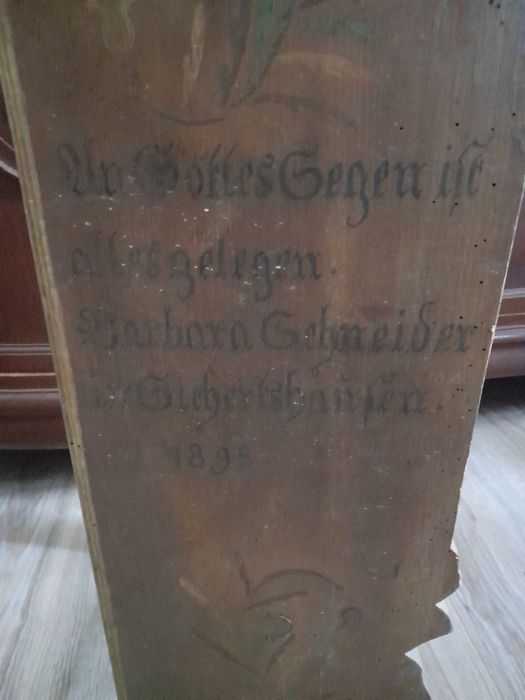 An Gottes Segen ist
alles gelegen.
Barbara Schneider
in Sichertshausen.
1898